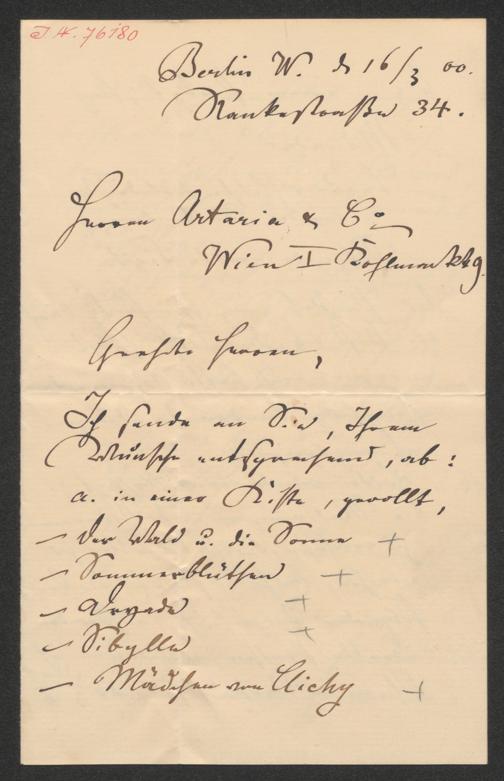 J.N. 76180
Berlin W. d 16/3 00.
Rankestraße 34.
Herren Artaria & Co
Wien I Kohlmarkt 9.
Geehrte Herren,
Ich sende an Sie, Ihrem
Wunsche entsprechend, ab:
a. in einer Kiste, gerollt,
— Der Wald u. die Sonne +
— Sommerblüthen +
— Dryade +
— Sibylle +
— Mädchen von Clichy +